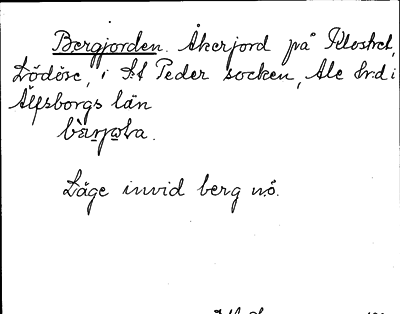 Bergjorden. Åkerjord på Klostret,
Lödöse, i St Peder socken, Ale hrd i
Älfsborgs län

Läge invid berg nö.